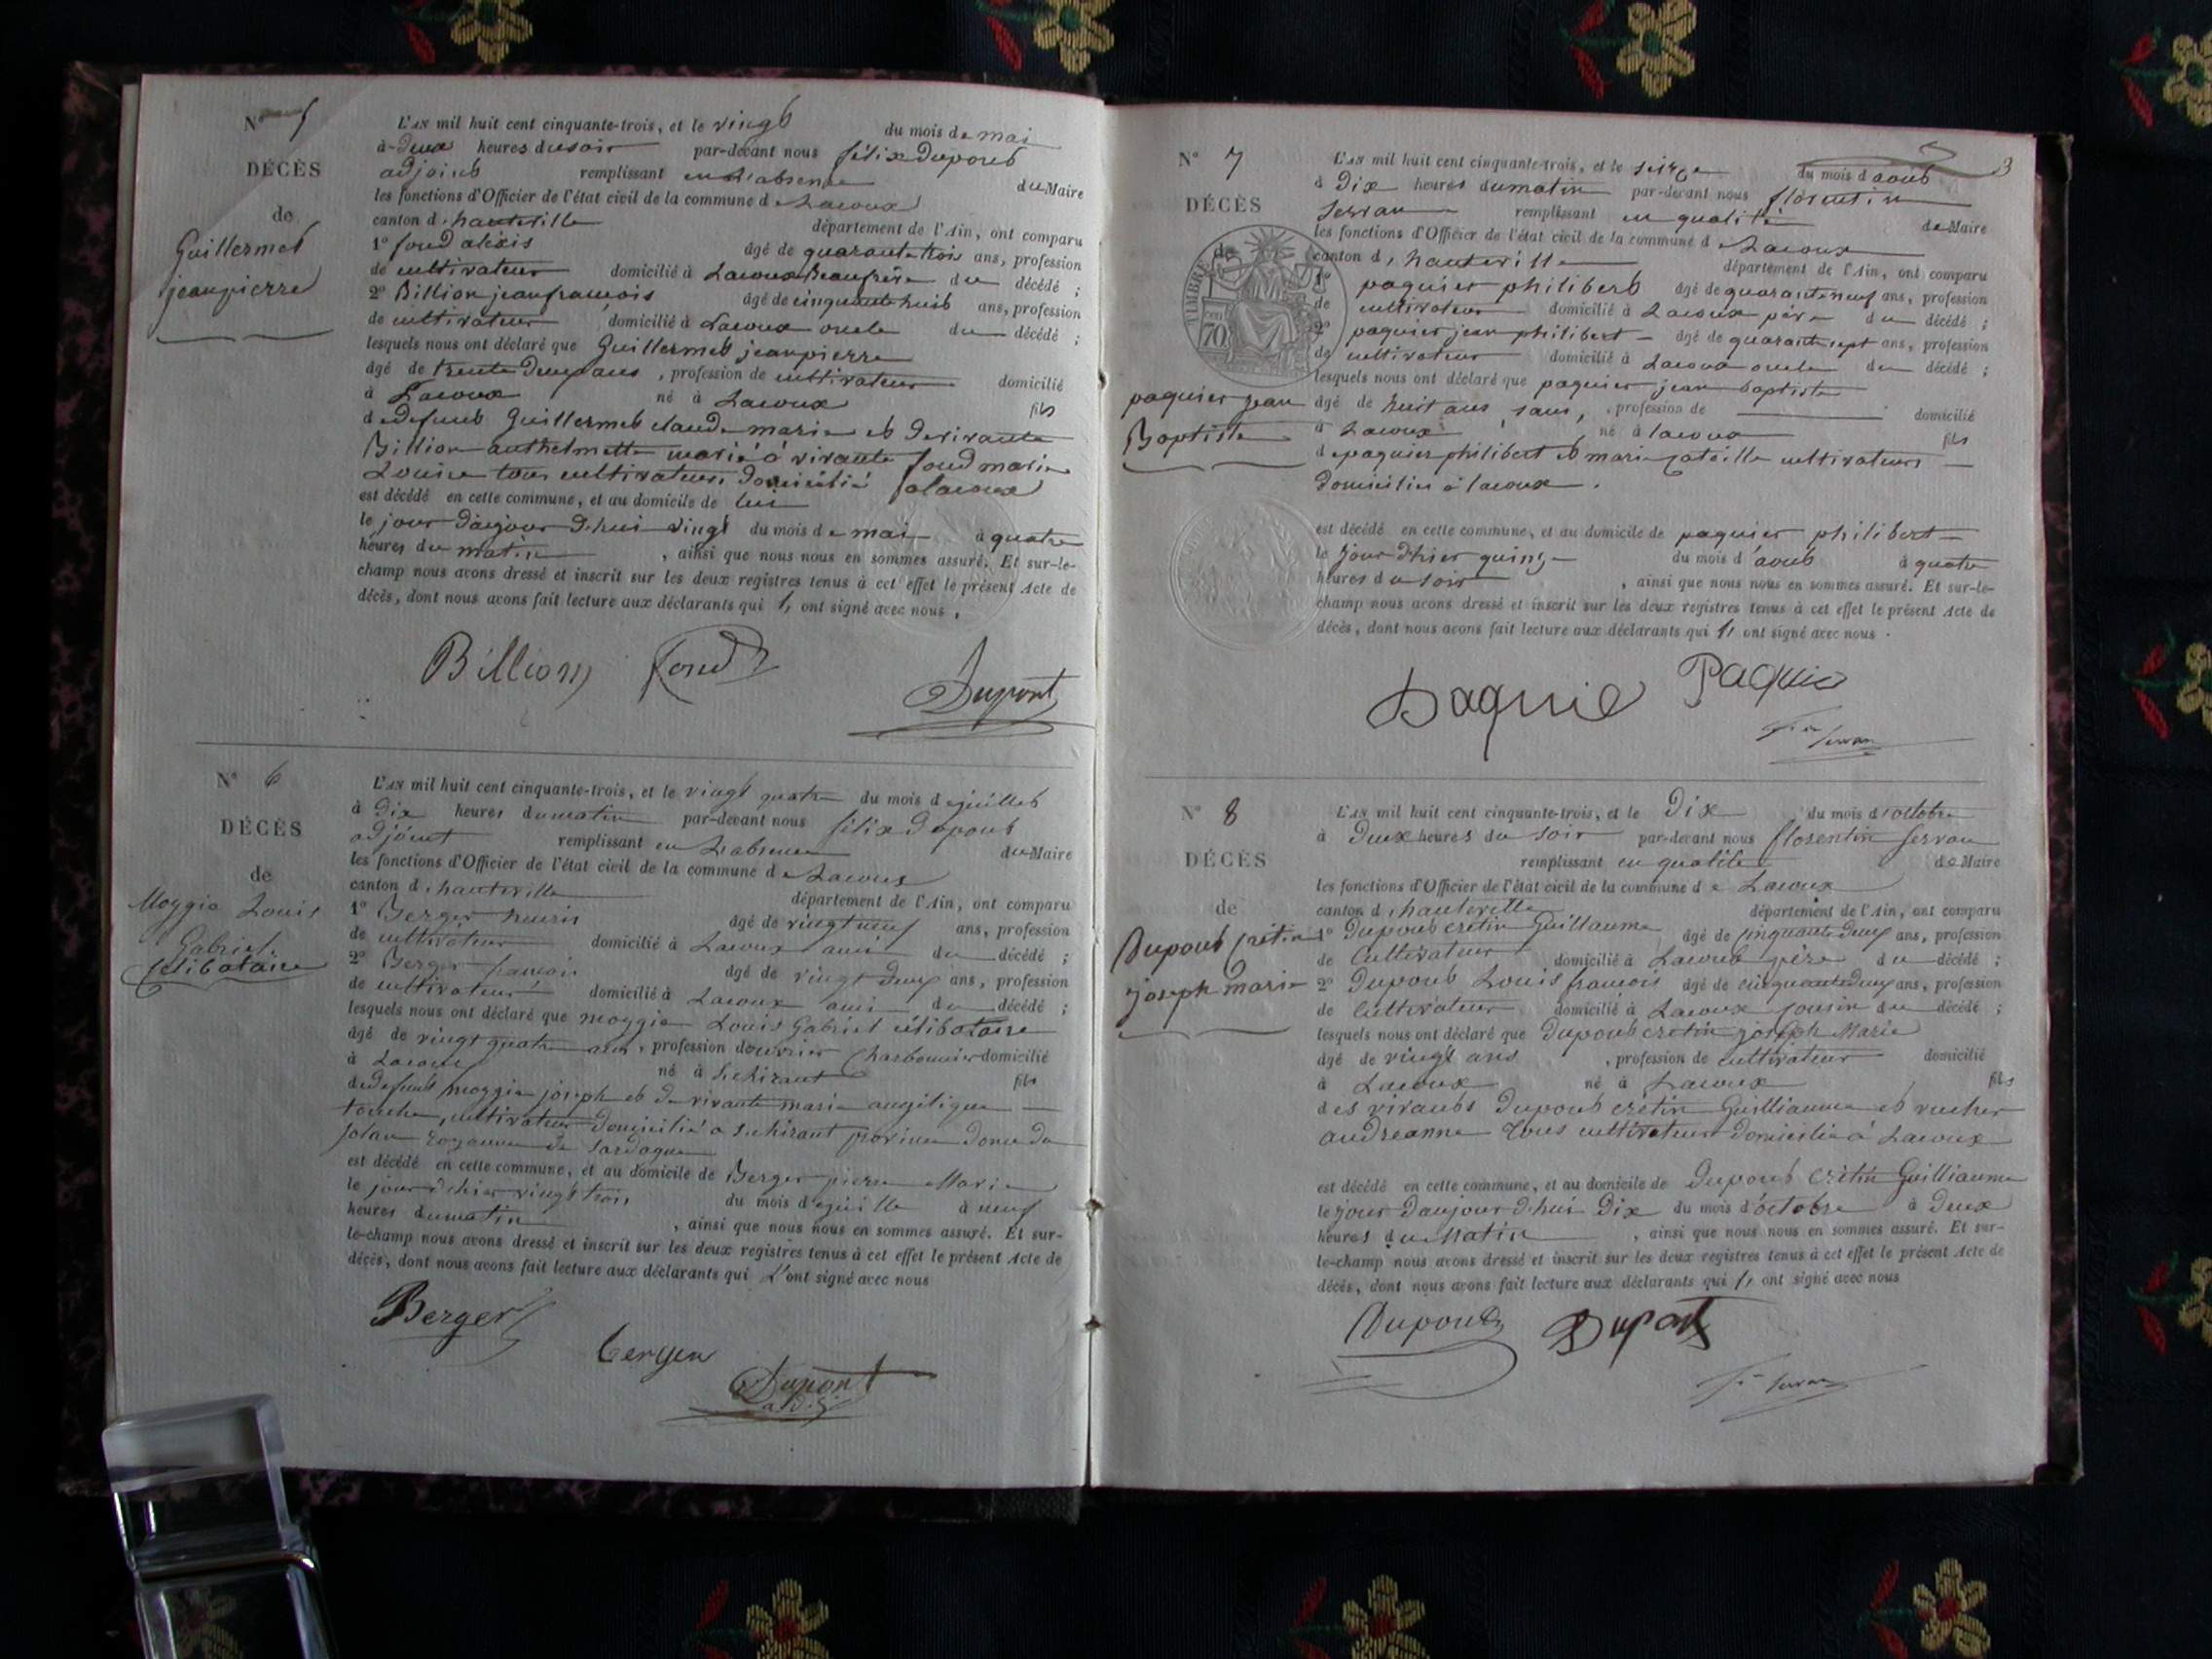 N° 5
DÉCÈS
de
Guillermet
jeanpierre
L'AN mil huit cent cinquante-trois, et le vingt du mois de mai
à deux heures du soir par-devant nous félix dupont
adjoint remplissant en l'absence du Maire
les fonctions d'Officier de l'état civil de la commune de Lacoux
canton d'hauteville département de l'Ain, ont comparu
1° fond aléxis âgé de quarante trois ans, profession
de cultivateur domicilié à Lacoux Beaufrère du décédé ;
2° Billion jeanfrançois âgé de cinquante huit ans, profession
de cultivateur domicilié à Lacoux oncle du décédé ;
lesquels nous ont déclaré que Guillermet jeanpierre
âgé de trente deux ans, profession de cultivateur domicilié
à Lacoux né à Lacoux fils
de defunt Guillermet claude marie et de vivante
Billion anthelmette marié à vivante fond marie
Louise tous cultivateurs domicilié a lacoux
est décédé en cette commune, et au domicile de lui
le jour daujour d'hui vingt du mois de mai à quatre
heures du matin, ainsi que nous nous en sommes assuré. Et sur-le-
champ nous avons dressé et inscrit sur les deux registres tenus à cet effet le présent Acte de
décès, dont nous avons fait lecture aux déclarants qui l, ont signé avec nous.
Billion fond Dupont
N° 6
DÉCÈS
de
Moggia Louis
Gabriel
célibataire
L'AN mil huit cent cinquante-trois, et le vingt quatre du mois de juillet
à dix heures du matin par-devant nous félix dupont
adjoint remplissant en l'absence du Maire
les fonctions d'Officier de l'état civil de la commune de Lacoux
canton d'hauteville département de l'Ain, ont comparu
1° Berger âgé de vingt neuf ans, profession
de cultivateur domicilié à Lacoux ami du décédé ;
2° Berger françois âgé de vingt deux ans, profession
de cultivateur domicilié à Lacoux ami du décédé ;
lesquels nous ont déclaré que moggia Louis Gabriel célibataire
âgé de vingt quatre ans, profession douvrier charbonnier domicilié
à Lacoux né à fils
de defunt moggia joseph et de vivante marie angélique
cultivateur domicilié a province
royaume de Sardagne
est décédé en cette commune, et au domicile de Berger pierre Marie
le jour d'hier vingt trois du mois de juille à neuf
heures du matin, ainsi que nous nous en sommes assuré. Et sur-
le-champ nous avons dressé et inscrit sur les deux registres tenus à cet effet le présent Acte de
décès, dont nous avons fait lecture aux déclarants qui L'ont signé avec nous
Berger
berger
Dupont
adj
3
N° 7
DÉCÈS
de
TIMBRE
70
paquier jean
Baptiste
L'AN mil huit cent cinquante-trois, et le seize du mois d'aout
à Dix heures du matin par-devant nous florentin
servan remplissant en qualité de Maire
les fonctions d'Officier de l'état civil de la commune de Lacoux
canton d'hauteville département de l'Ain, ont comparu
1° paquier philibert âgé de quarante neuf ans, profession
de cultivateur domicilié à Lacoux père du décédé ;
2° paquier jean philibert âgé de quarante sept ans, profession
de cultivateur domicilié à Lacoux oncle du décédé ;
lesquels nous ont déclaré que paquier jean baptiste
âgé de huit ans, sans, profession de domicilié
à Lacoux né à lacoux fils
de paquier philibert et marie cultivateurs
domicilies à lacoux.
est décédé en cette commune, et au domicile de paquier philibert
le jour d'hier quinze du mois d'aout à quatre
heures du soir, ainsi que nous nous en sommes assuré. Et sur-le-
champ nous avons dressé et inscrit sur les deux registres tenus à cet effet le présent Acte de
décès, dont nous avons fait lecture aux déclarants qui l, ont signé avec nous.
Paquie Paquie
servan
N° 8
DÉCÈS
de
Dupont crétin
joseph marie
L'AN mil huit cent cinquante-trois, et le Dix du mois d'octobre
à Deux heures du soir par-devant nous florentin servan
remplissant en qualité de Maire
les fonctions d'Officier de l'état civil de la commune de Lacoux
canton d'hauteville département de l'Ain, ont comparu
1° Dupont crétin Guillaume âgé de cinquante deux ans, profession
de Cultivateur domicilié à Lacoux père du décédé ;
2° Dupont Louis françois âgé de cinquante deux ans, profession
de Cultivateur domicilié à Lacoux cousin du décédé ;
lesquels nous ont déclaré que Dupont crétin joseph Marie
âgé de vingt ans, profession de cultivateur domicilié
à Lacoux né à Lacoux fils
des vivants Dupont crétin Guilliaume et rucher
andreanne tous cultivateurs domicilié à Lacoux
est décédé en cette commune, et au domicile de Dupont Crétin Guilliaume
le jour daujour d'hui Dix du mois d'octobre à Deux
heures du Matin, ainsi que nous nous en sommes assuré. Et sur-
le-champ nous avons dressé et inscrit sur les deux registres tenus à cet effet le présent Acte de
décès, dont nous avons fait lecture aux déclarants qui l, ont signé avec nous
Dupont Dupont
servan